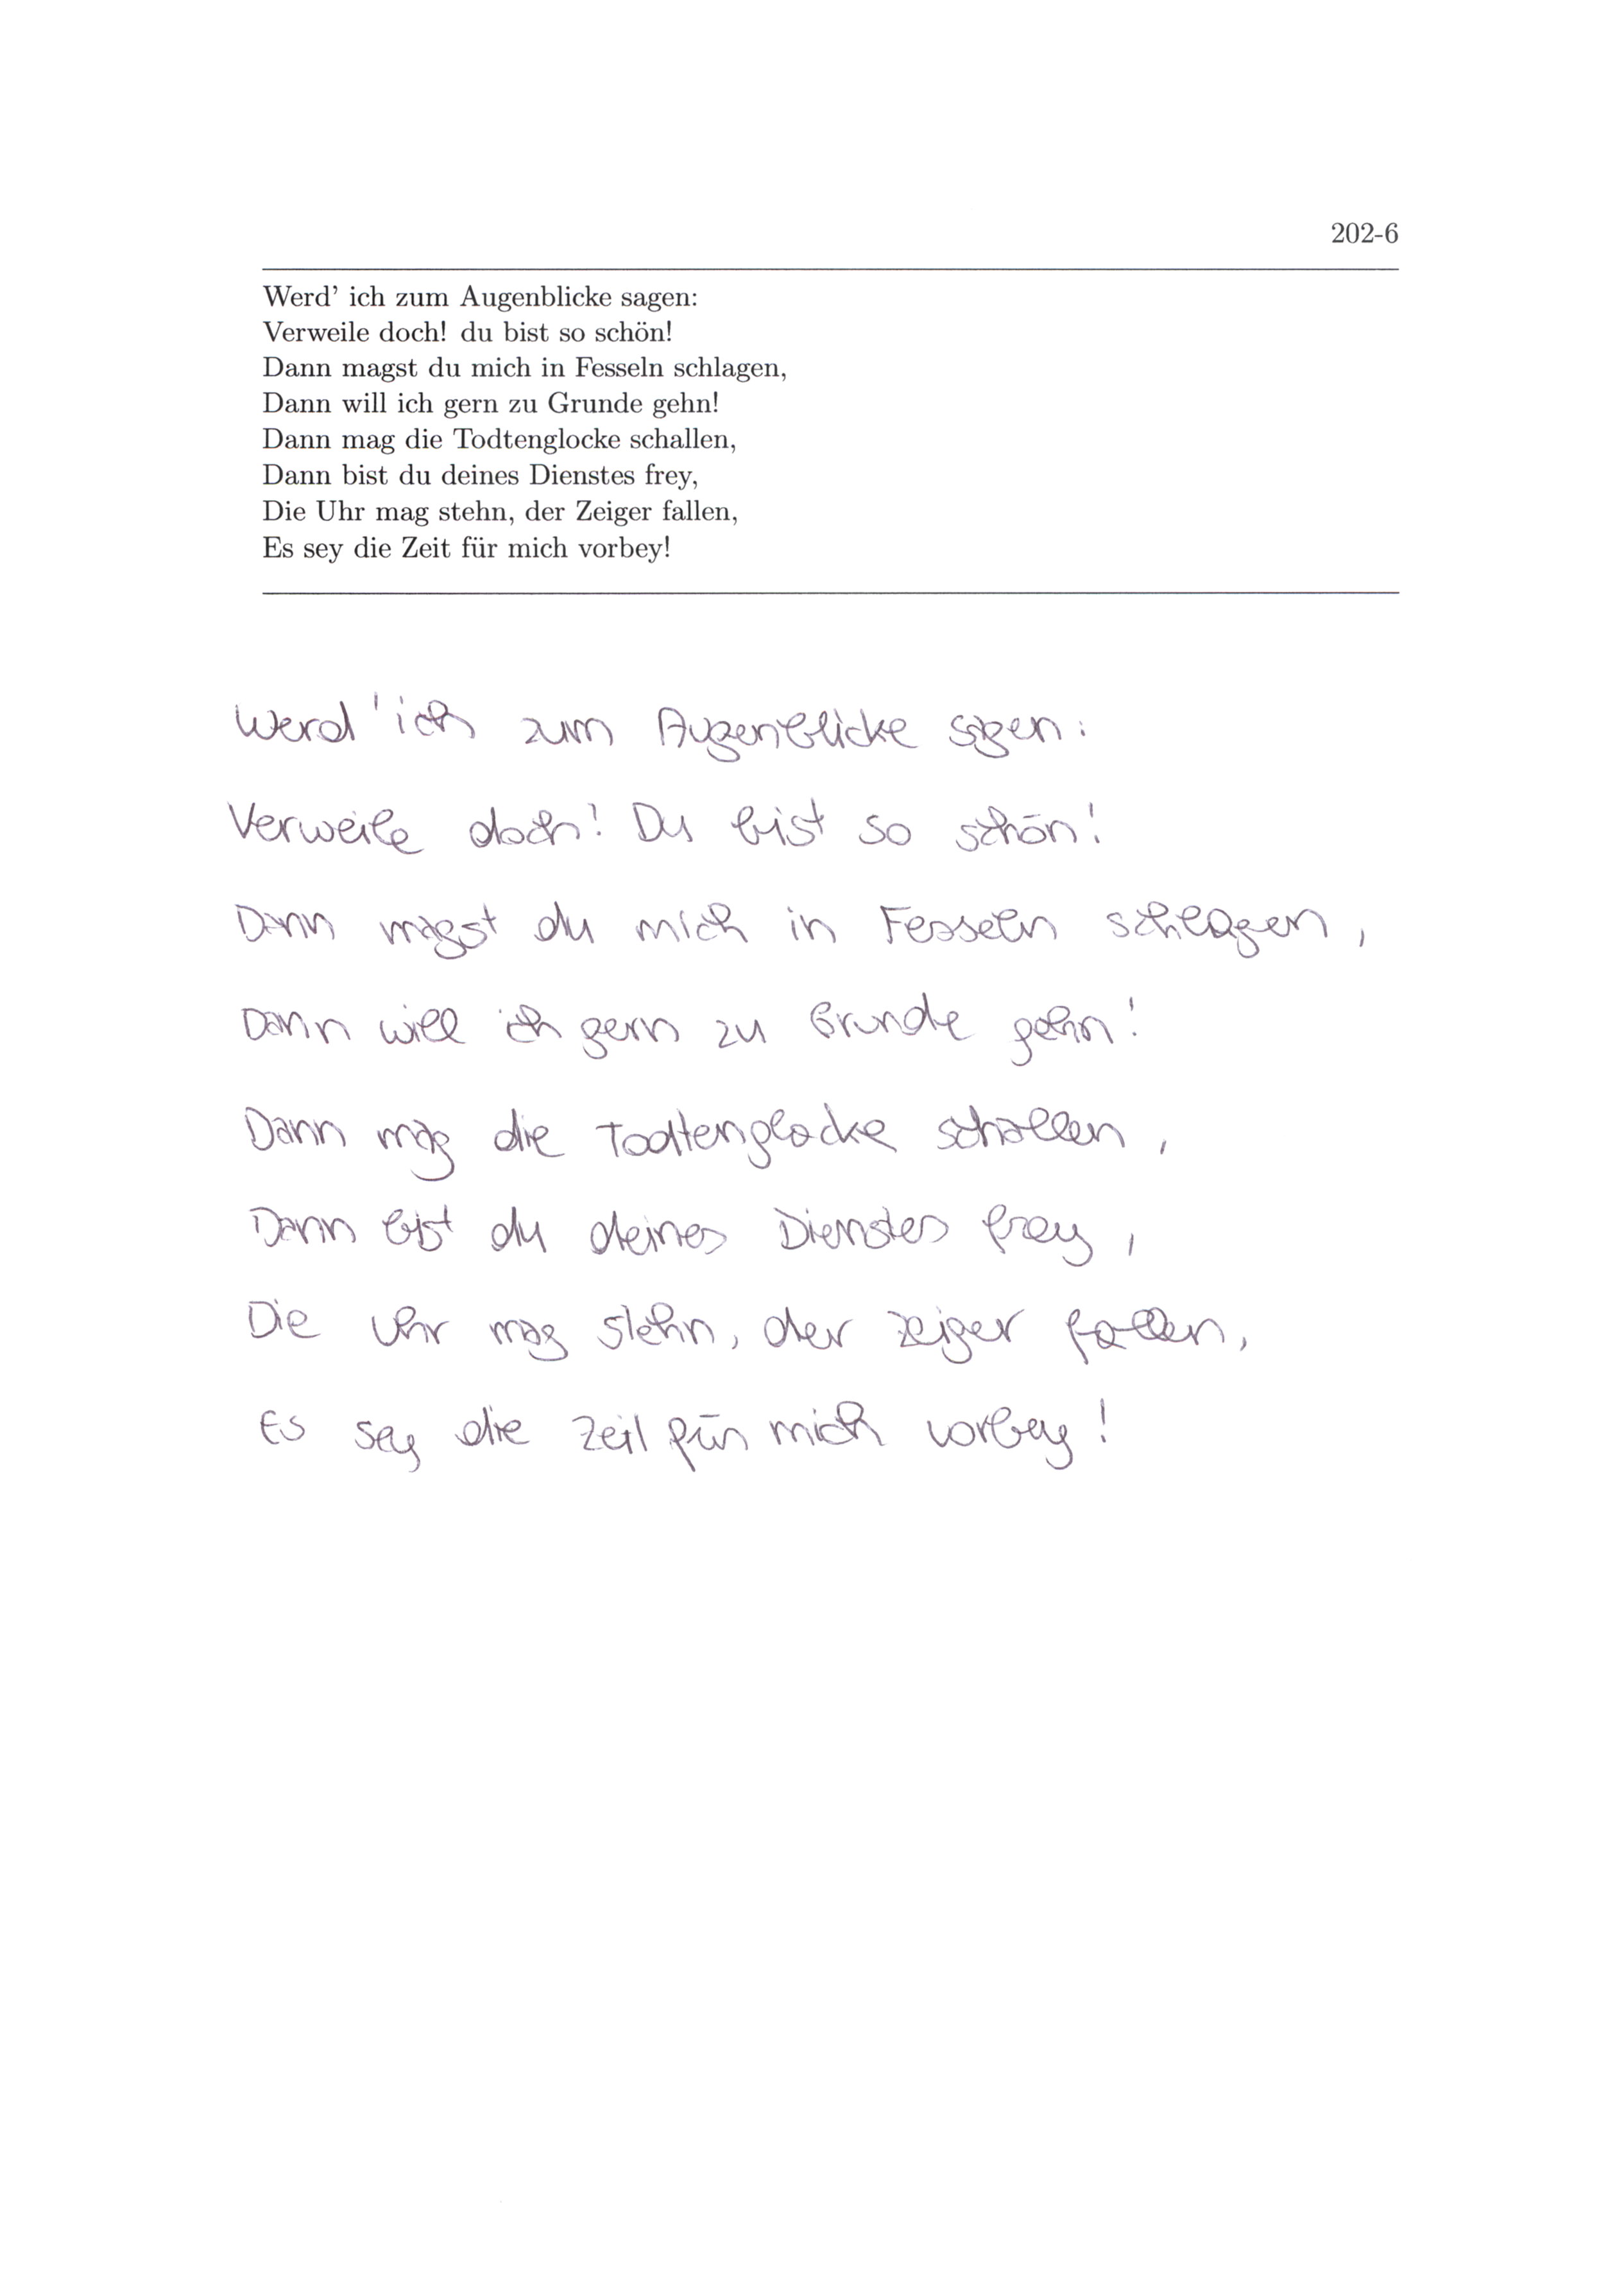 202-6
Werd' ich zum Augenblicke sagen:
Verweile doch! du bist so schön!
Dann magst du mich in Fesseln schlagen,
Dann will ich gern zu Grunde gehn!
Dann mag die Todtenglocke schallen,
Dann bist du deines Dienstes frey,
Die Uhr mag stehn, der Zeiger fallen,
Es sey die Zeit für mich vorbey!
Werd 'ich zum Augenblicke sagen:
Verweile doch! Du bist so schön!
Dann magst du mich in Fesseln schlagen,
Dann will ich gern zu Grunde gehn!
Dann mag die Todtenglocke schallen,
Dann bist du deines Dienstes frey,
Die Uhr mag stehn, der Zeiger fallen,
Es sey die Zeit für mich vorbey!